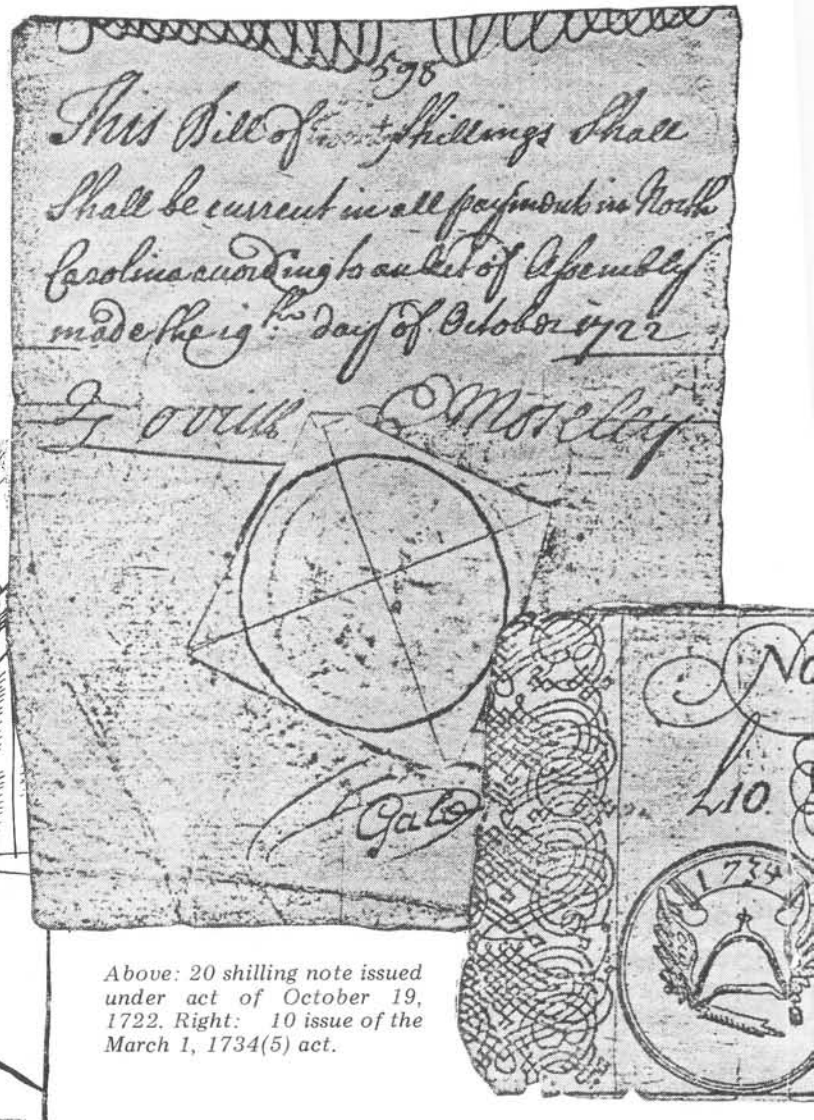 598
This Bill of twenty Shillings Shall
Shall be current in all payments in North
Carolina according to an Act of Assembly
made the 19th day of October 1722
J Lovick E Moseley
Gale
No
£10
1734
Above: 20 shilling note issued
under act of October 19,
1722. Right: 10 issue of the
March 1, 1734(5) act.